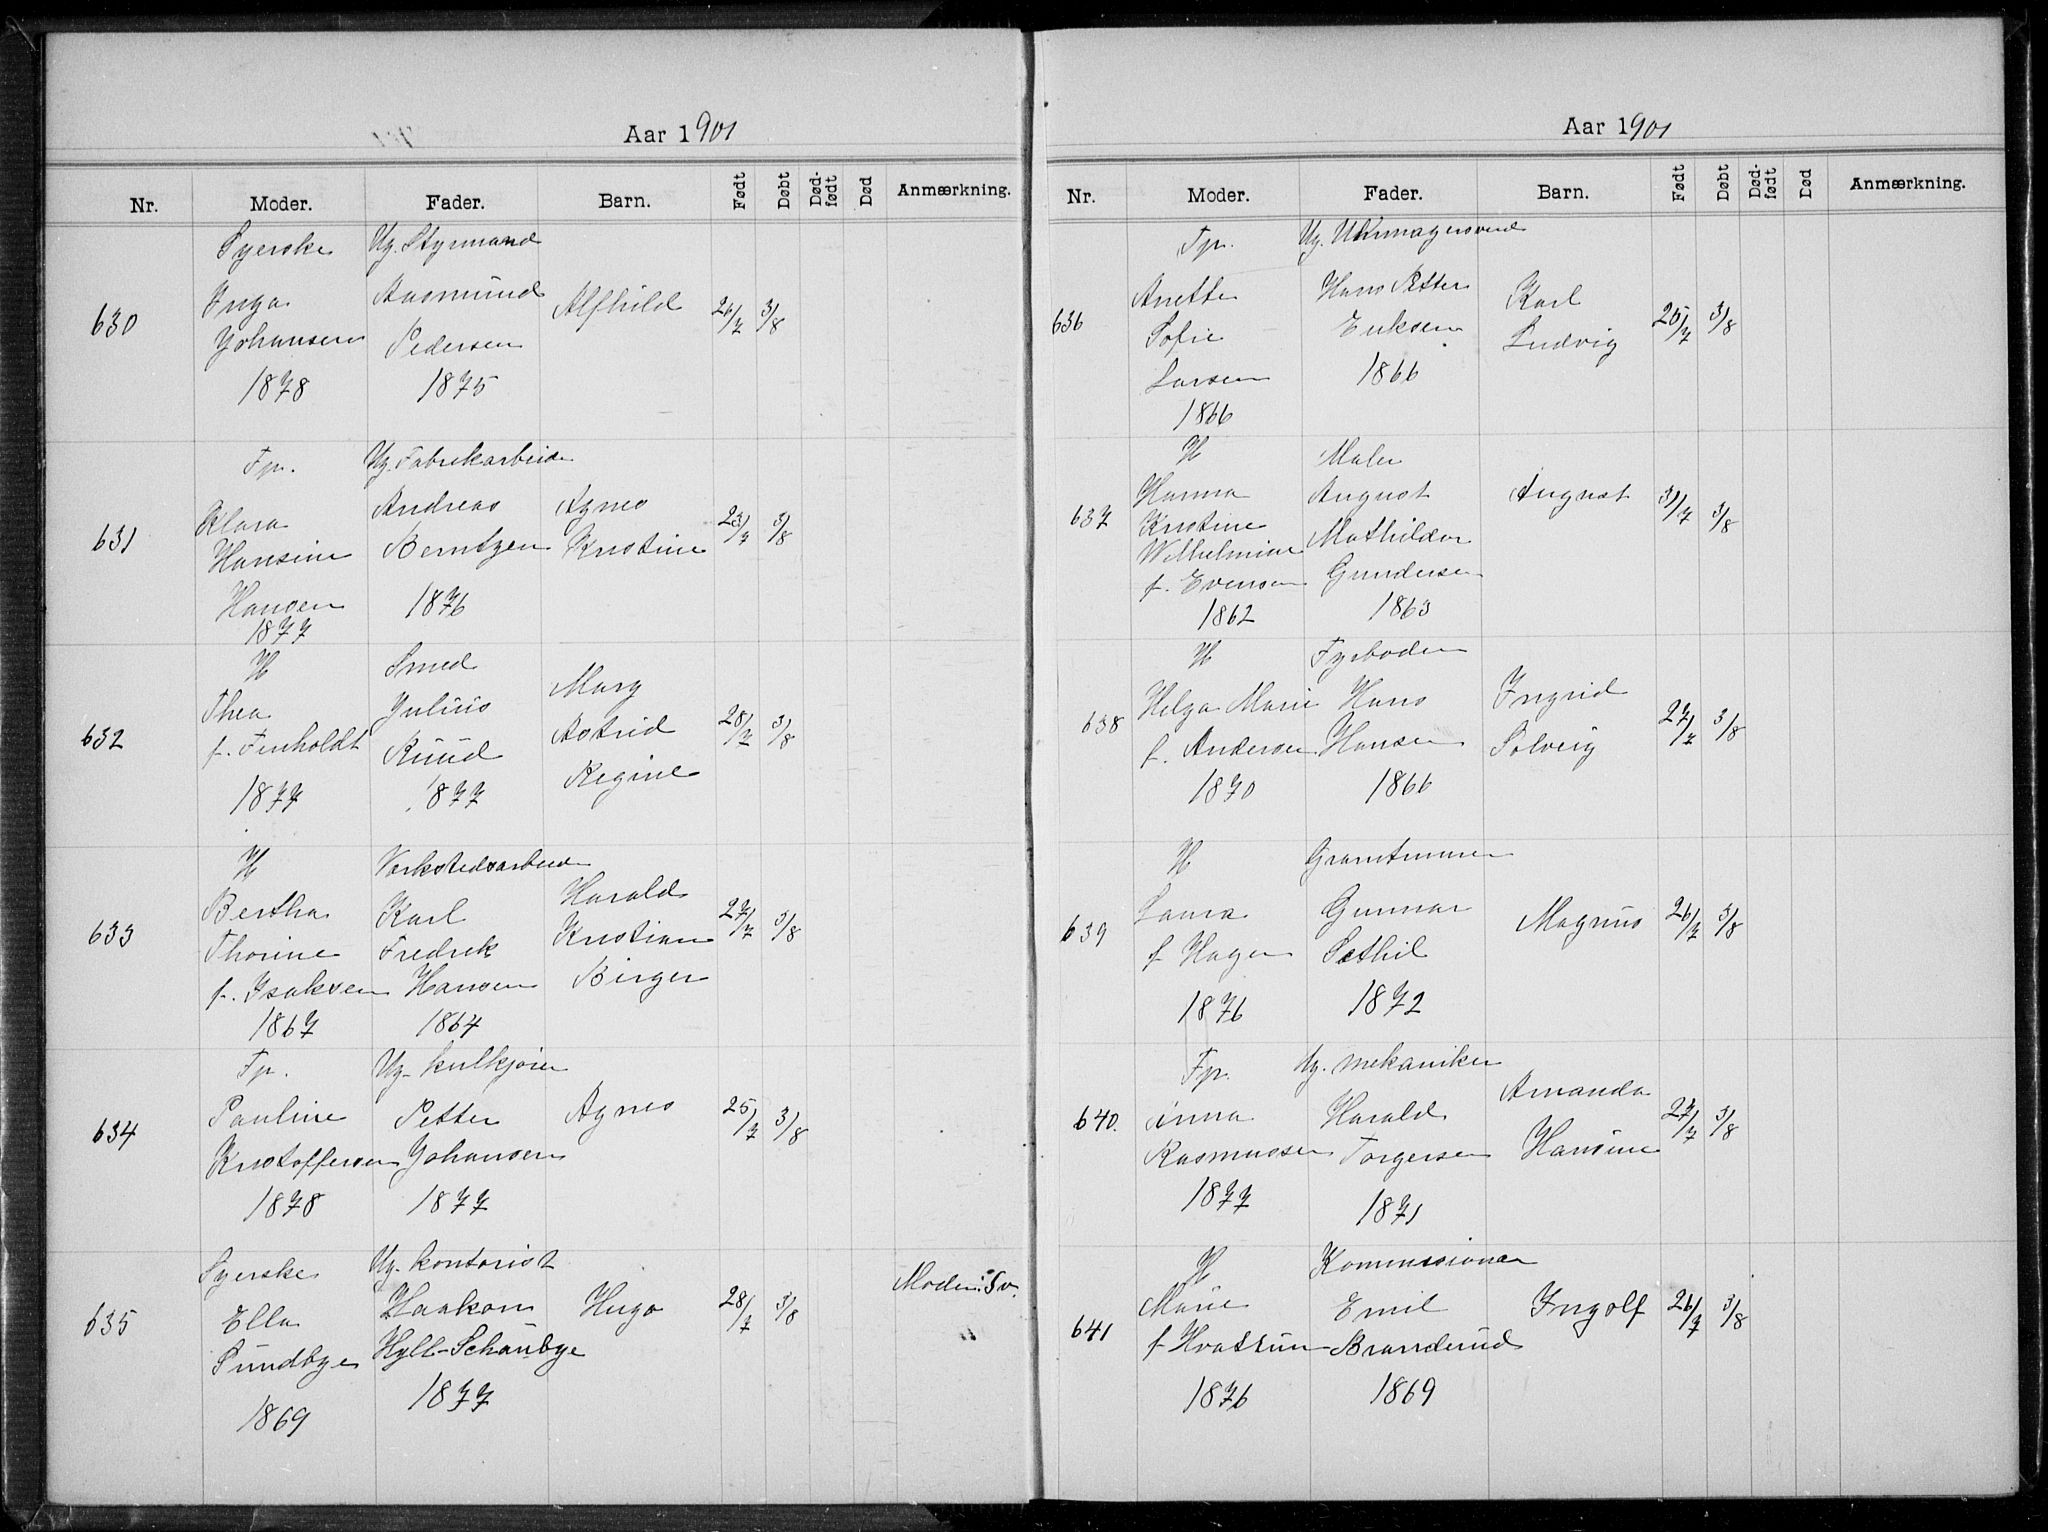 Aar 1901
Nr. Moder. Fader. Barn. Født Døbt Død-født Død Anmærkning.
Syerske Ug. Styrmand
630 Inga Johansen 1878 Aasmund Pedersen 1875 Alfhild 26/7 3/8
Tp. Ug. Fabrikarbeider
631 Klara Hansine Hansen 1877 Andreas Berntzen 1876 Agnes Kristine 23/7 3/8
H Smed
632 Thea f. Fenholdt 1877 Julius Ruud 1877 Mary Astrid Regine 28/7 3/8
H Verkstedsarbeider
633 Bertha Thorine f. Isaksen 1867 Karl Fredrik Hansen 1864 Harald Kristian Birger 27/7 3/8
Tp. Ug. kulkjører
634 Pauline Kristoffersen 1878 Petter Johansen 1877 Agnes 25/7 3/8
Syerske Ug. kontorist
635 Ella Sundbye 1869 Haakon Hyll-Schaubye 1877 Hugo 28/7 3/8 Moder: Sv.
Aar 1901
Nr. Moder. Fader. Barn. Født Døbt Død-født Død Anmærkning.
Tp. Ug. Uhrmagersvend
636 Anette Sofie Larsen 1866 Hans Petter Eriksen 1866 Karl Ludvig 25/7 3/8
H Maler
637 Hanna Kristine Wilhelmine f. Evensen 1862 August Mathildor Gundersen 1863 August 31/7 3/8
H Fyrbøder
638 Helga Marie f. Andersen 1870 Hans Hansen 1866 Ingrid Solveig 27/7 3/8
H
639 Laura f Hagen 1876 Gunnar Sæthil 1872 Magnus 26/7 3/8
Tp. Ug. mekaniker
640. Anna Rasmussen 1877 Harald Torgersen 1871 Amanda Hansine 27/7 3/8
H Kommissionær
641 Marie f Hvattun 1876 Emil Branderud 1869 Ingolf 26/7 3/8